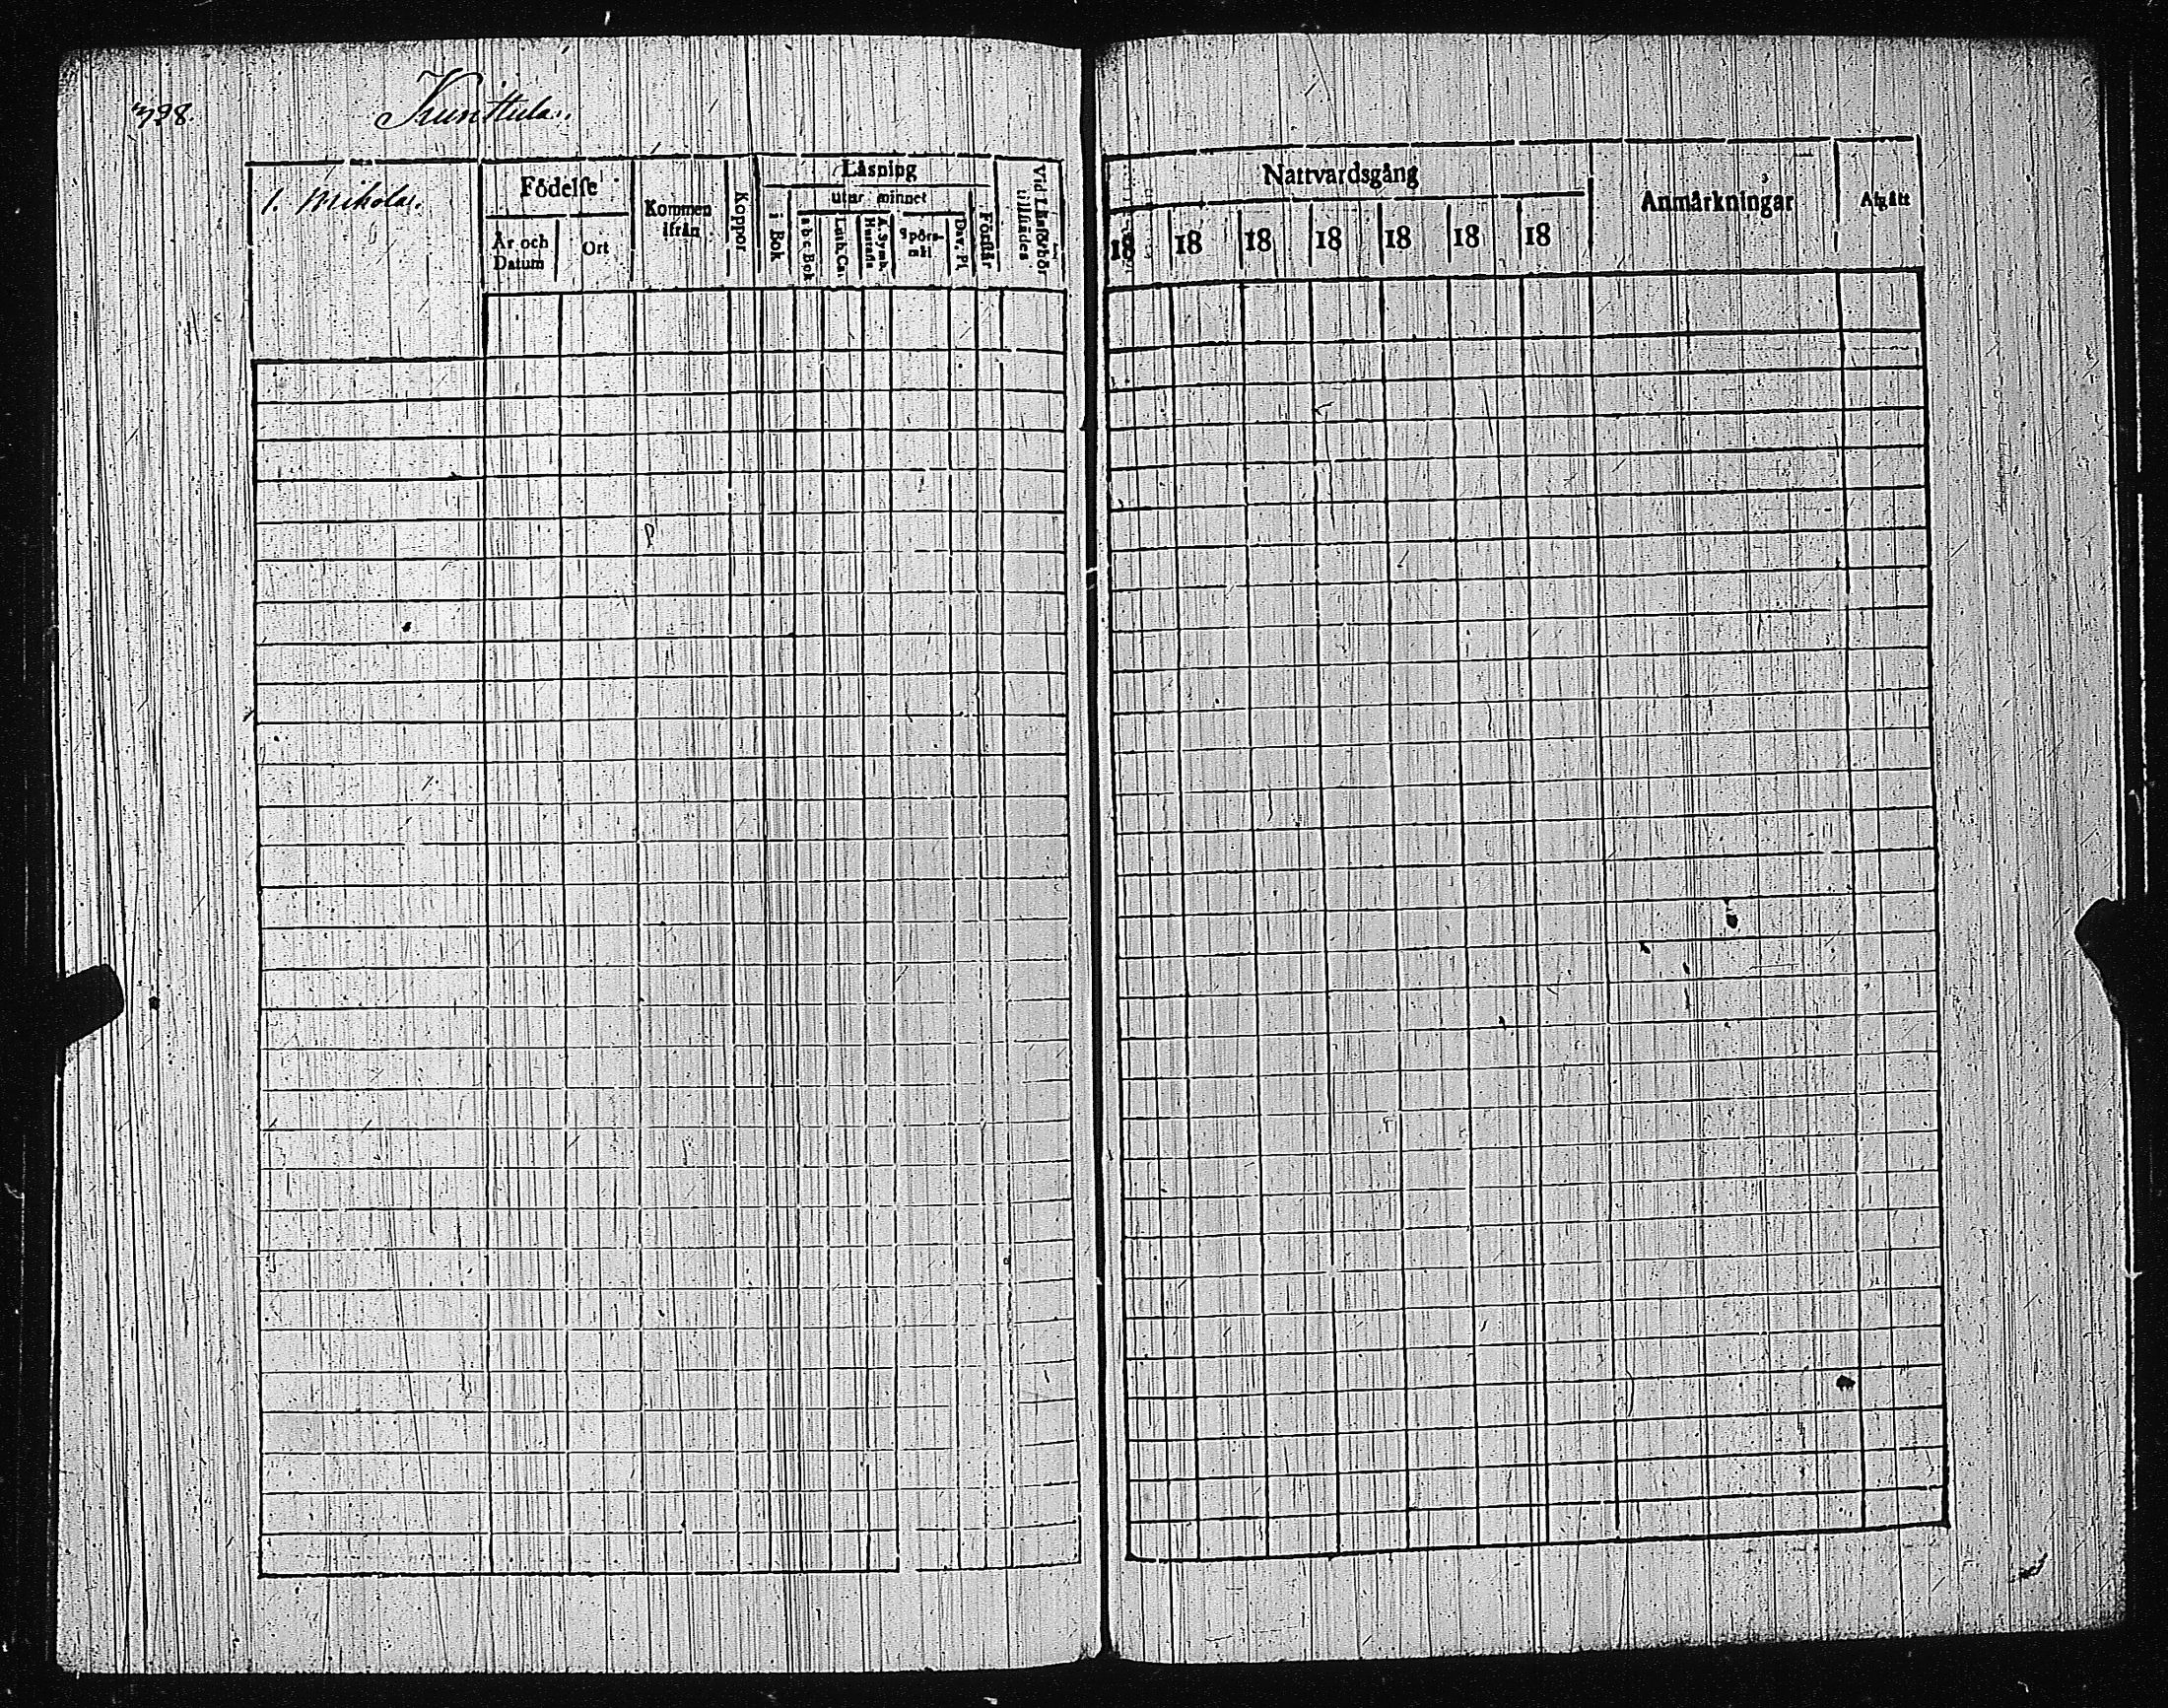 328.
Kunttula.
1. Mikola.
Födelse
År och Datum
Ort
Kommen ifrån
Koppor
Läsning
i Bok
utur minnet
a b c Bok
Luth. Cat.
A. Symb. Hustafla
Spörsmål
Dav. Ps.
Förstår
Vid Läseförhör tillstädes
Nattvardsgång
18 18 18 18 18 18 18
Anmärkningar
Afgått